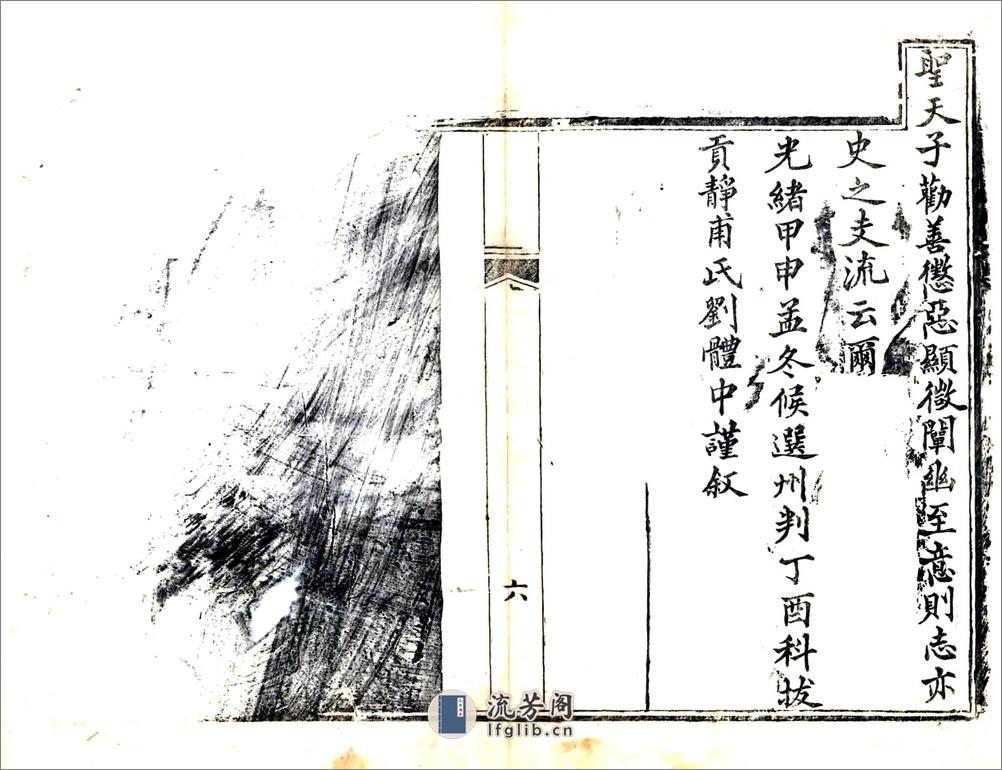 聖天子勸善懲惡顯微闡幽至意則志亦
史之支流云爾
光緒甲申孟冬候選州判丁酉科拔
貢靜甫氏劉體中謹叙
六
流芳阁
lfglib.cn